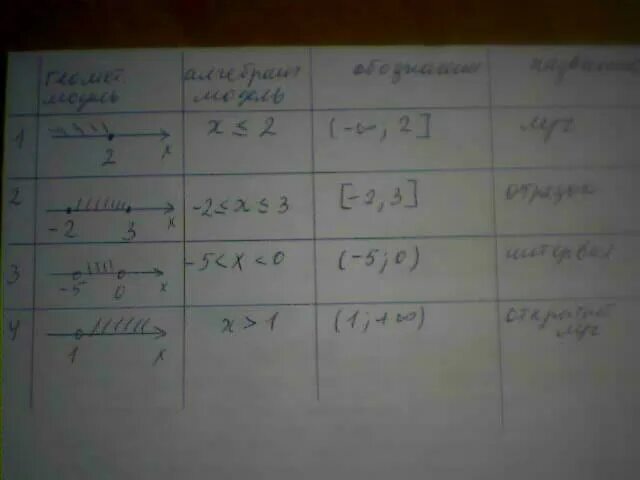 геомет алгебраич обозначен
модель модель
1 2 x x ≤ 2 (-∞, 2] луч
2 -2 3 x -2 ≤ x ≤ 3 [-2, 3] отрезок
3 -5 0 x -5 < x < 0 (-5; 0) интервал
4 1 x x > 1 (1; +∞) открытый
луч